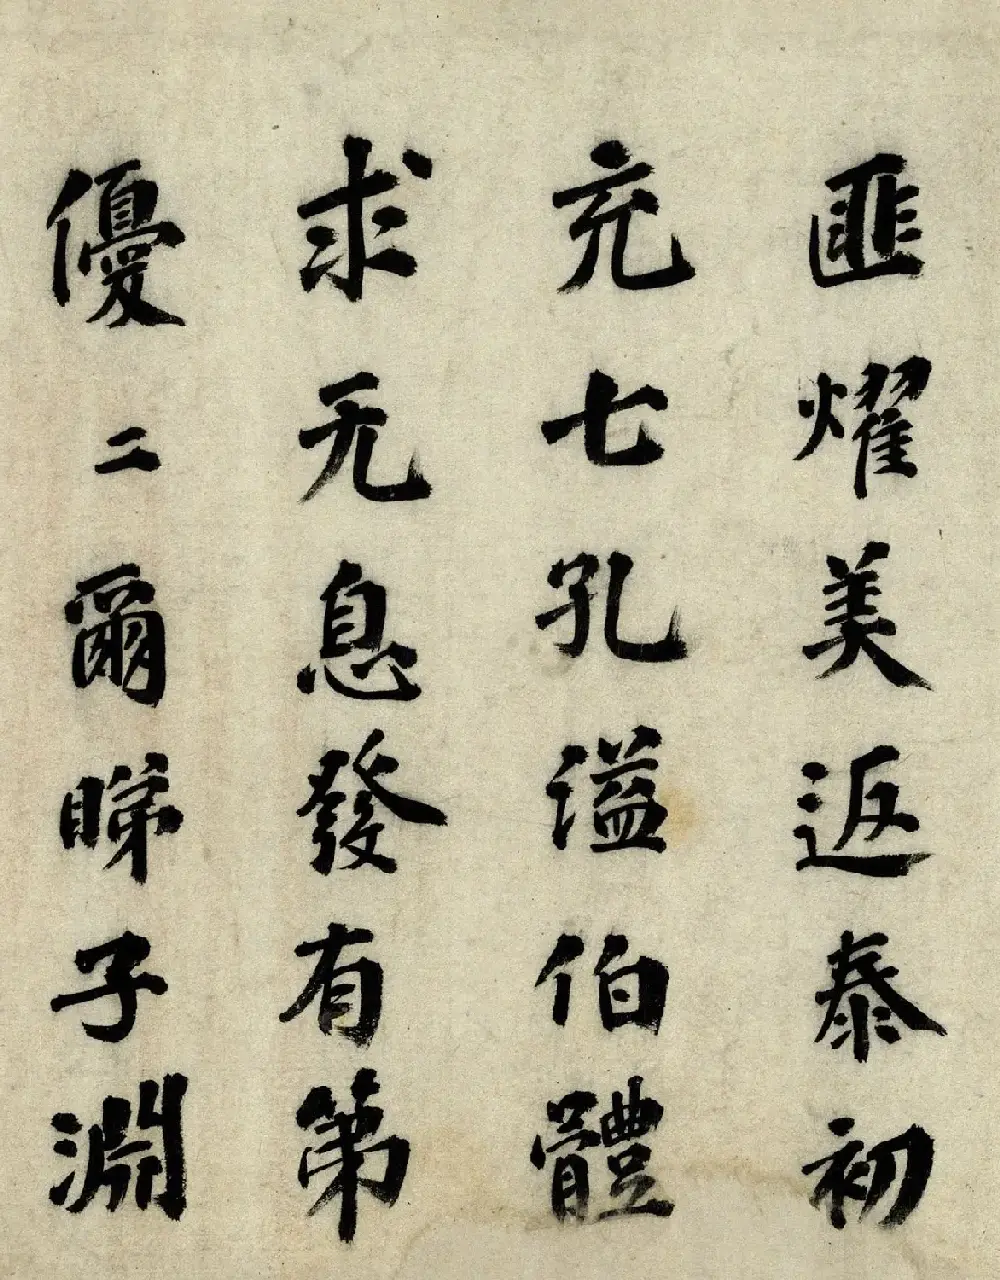 匪耀美返泰初
充七孔溢伯體
求无息發有第
優二爾睇子淵